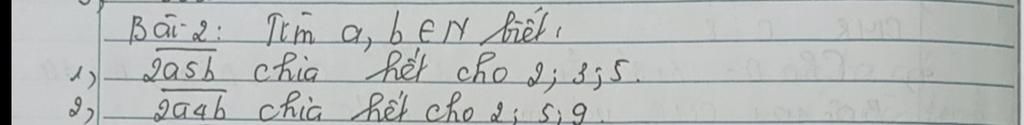 Bài 2: Tìm a, b ∈ N biết:
1) 2a5b chia hết cho 2; 3; 5.
2) 2a4b chia hết cho 2; 5; 9.